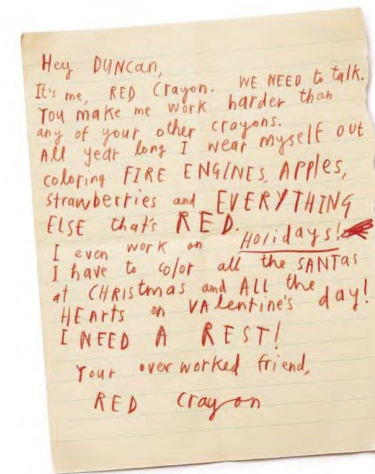 Hey DUNCan,
It's me, RED Crayon. WE NEED to talk.
You make me work harder than
any of your other crayons.
All year long I wear myself out
coloring FIRE ENGINES, APPles,
strawberries and EVERYTHING
ELSE that's RED.
I even work on Holidays!
I have to color all the SANTas
at CHRistmas and ALL the
HEArts on VAlentine's day!
I NEED A REST!
Your overworked friend,
RED Crayon